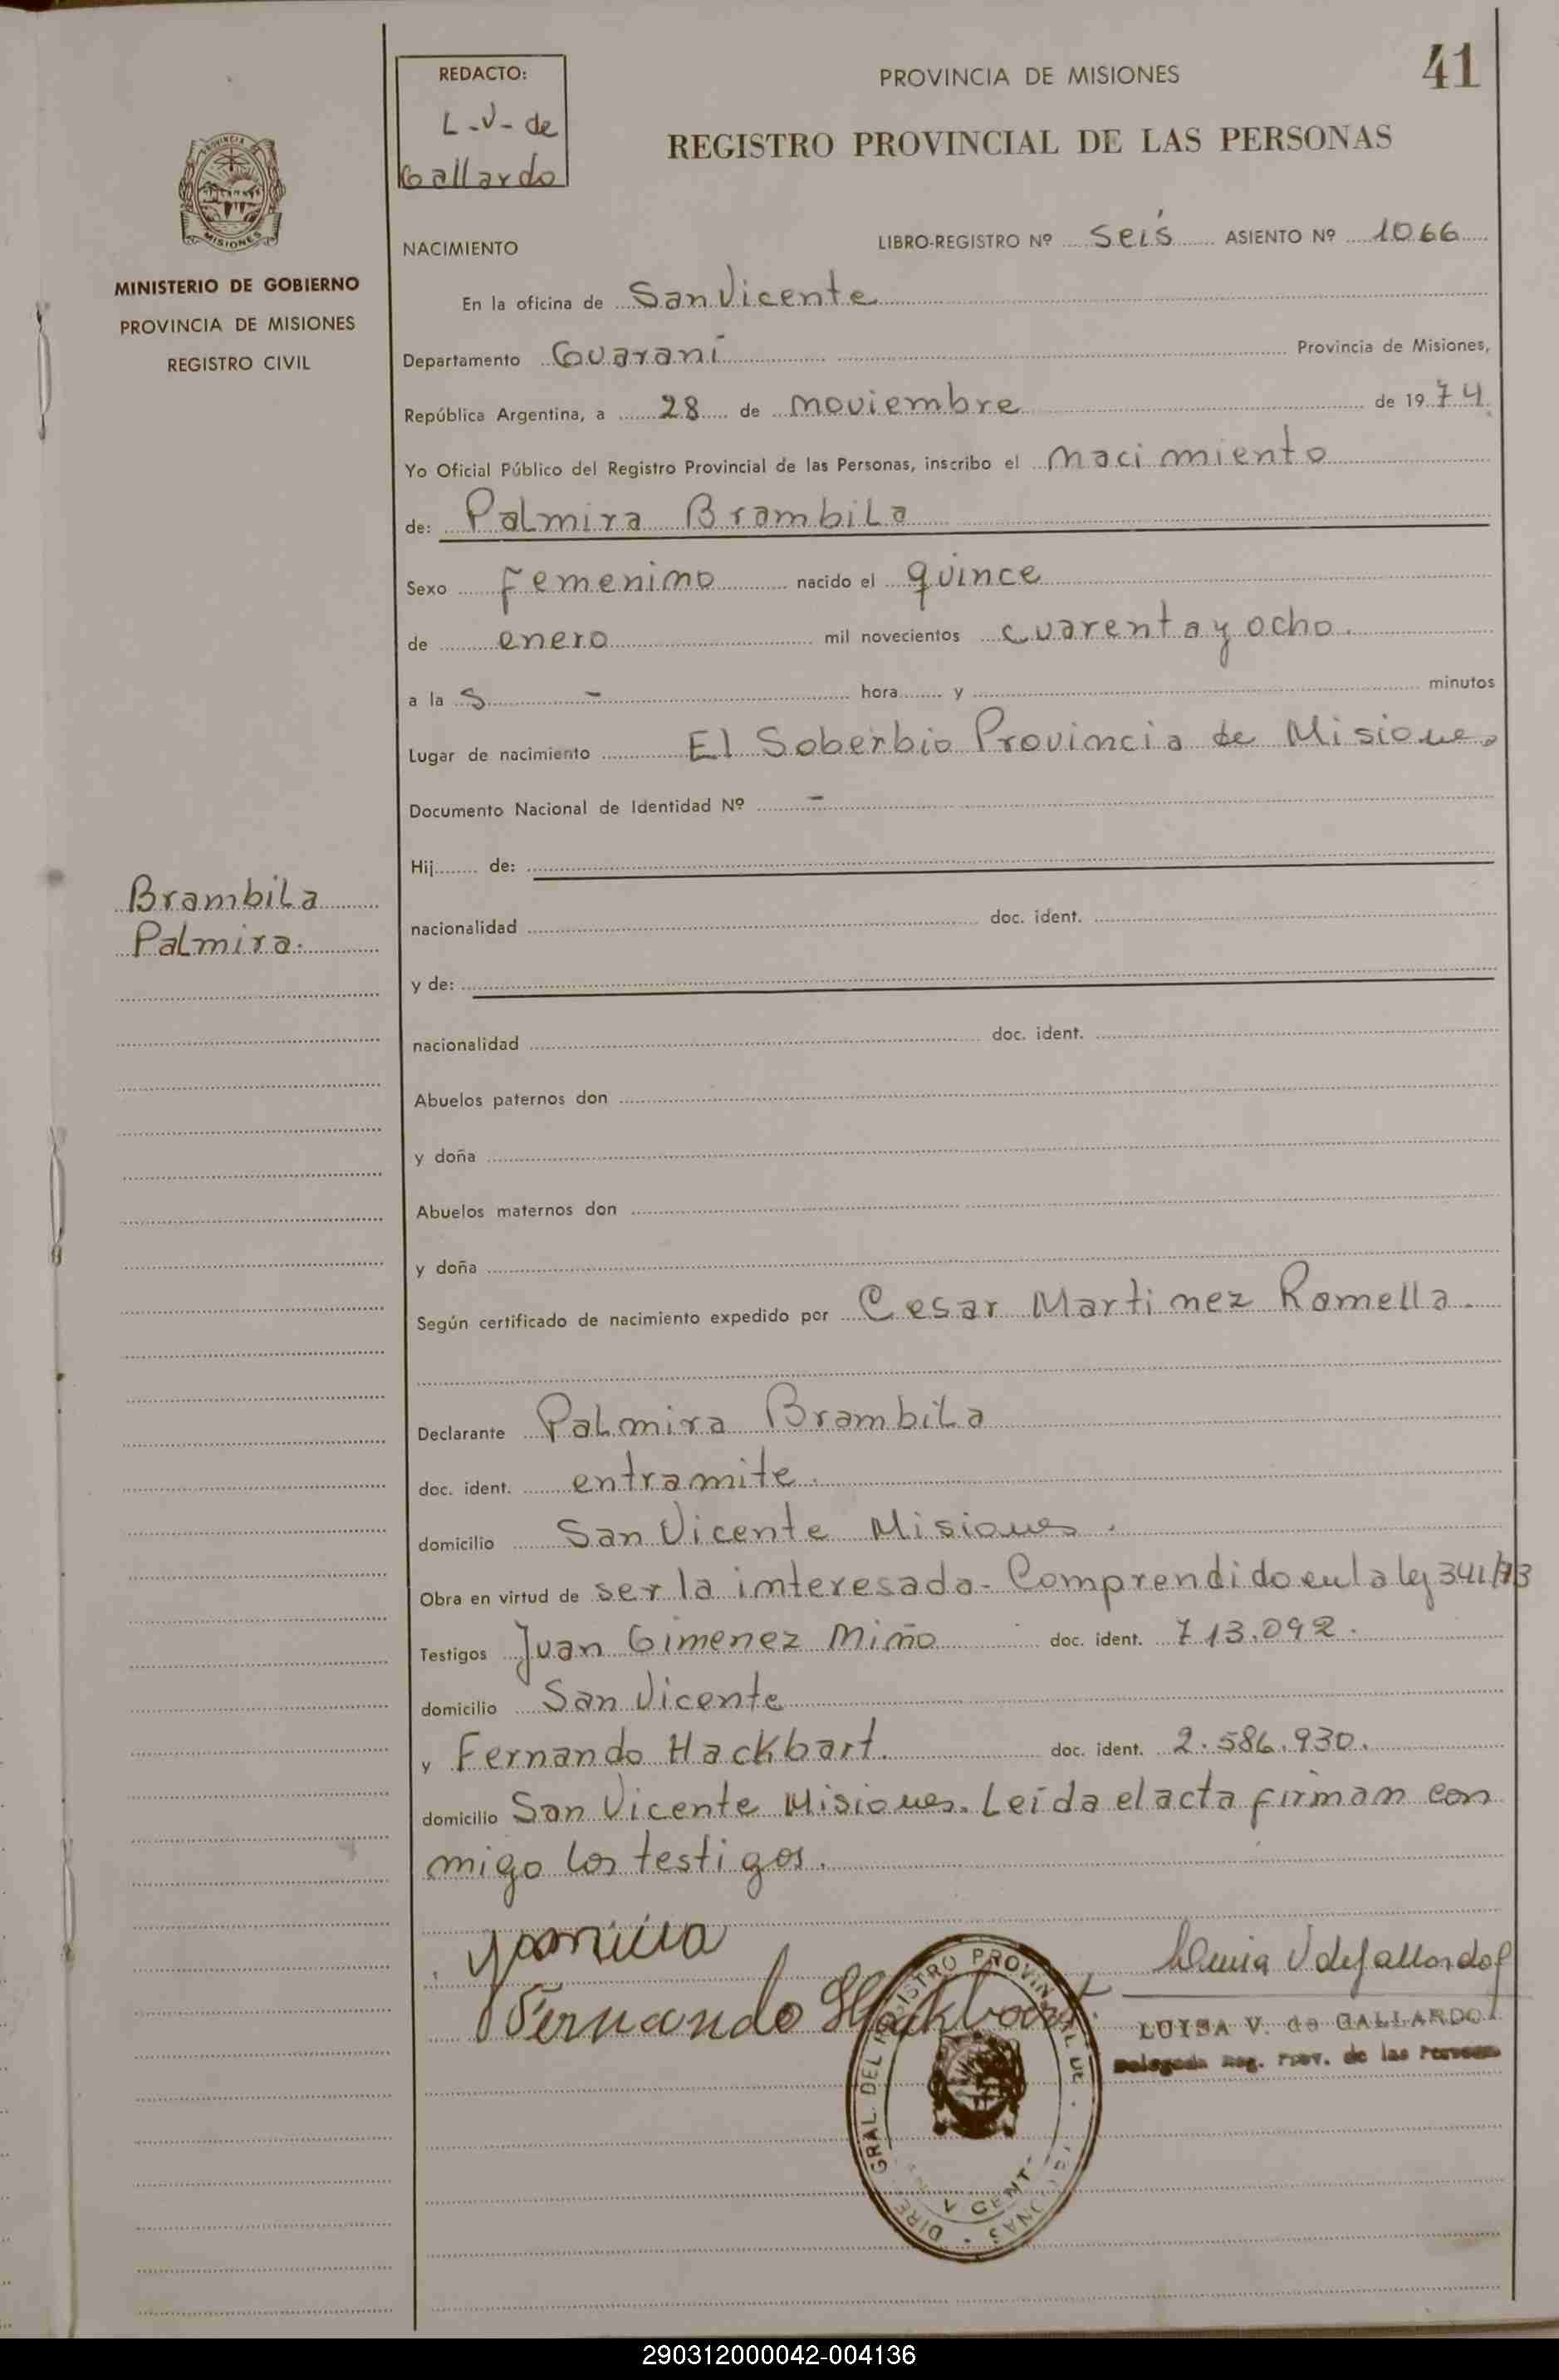 REDACTO:
L-V- de
Gallardo
PROVINCIA DE MISIONES
41
REGISTRO PROVINCIAL DE LAS PERSONAS
PROVINCIA DE
MISIONES
MINISTERIO DE GOBIERNO
PROVINCIA DE MISIONES
REGISTRO CIVIL
NACIMIENTO
LIBRO-REGISTRO Nº Seis ASIENTO Nº 1066
En la oficina de San Vicente
Departamento Guaraní Provincia de Misiones,
República Argentina, a 28 de noviembre de 1974.
Yo Oficial Público del Registro Provincial de las Personas, inscribo el nacimiento
de: Palmira Brambila
Sexo femenino nacido el quince
de enero mil novecientos cuarenta y ocho.
a la s - hora y minutos
Lugar de nacimiento El Soberbio Provincia de Misiones
Documento Nacional de Identidad Nº -
Hij de:
Brambila
Palmira.
nacionalidad doc. ident.
y de:
nacionalidad doc. ident.
Abuelos paternos don
y doña
Abuelos maternos don
y doña
Según certificado de nacimiento expedido por Cesar Martinez Ramella.
Declarante Palmira Brambila
doc. ident. entramite.
domicilio San Vicente Misiones.
Obra en virtud de ser la interesada- Comprendido en la ley 341/73
Testigos Juan Gimenez Miño doc. ident. 713.092.
domicilio San Vicente
y Fernando Hackbart. doc. ident. 2.586.930.
domicilio San Vicente Misiones. Leída el acta firman con
migo los testigos.
Fernando Hackbart.
Luisa V de Gallardo
LUISA V. de GALLARDO
Delegada Reg. Prov. de las Personas
GRAL. DEL REGISTRO PROVINCIAL DE
290312000042-004136